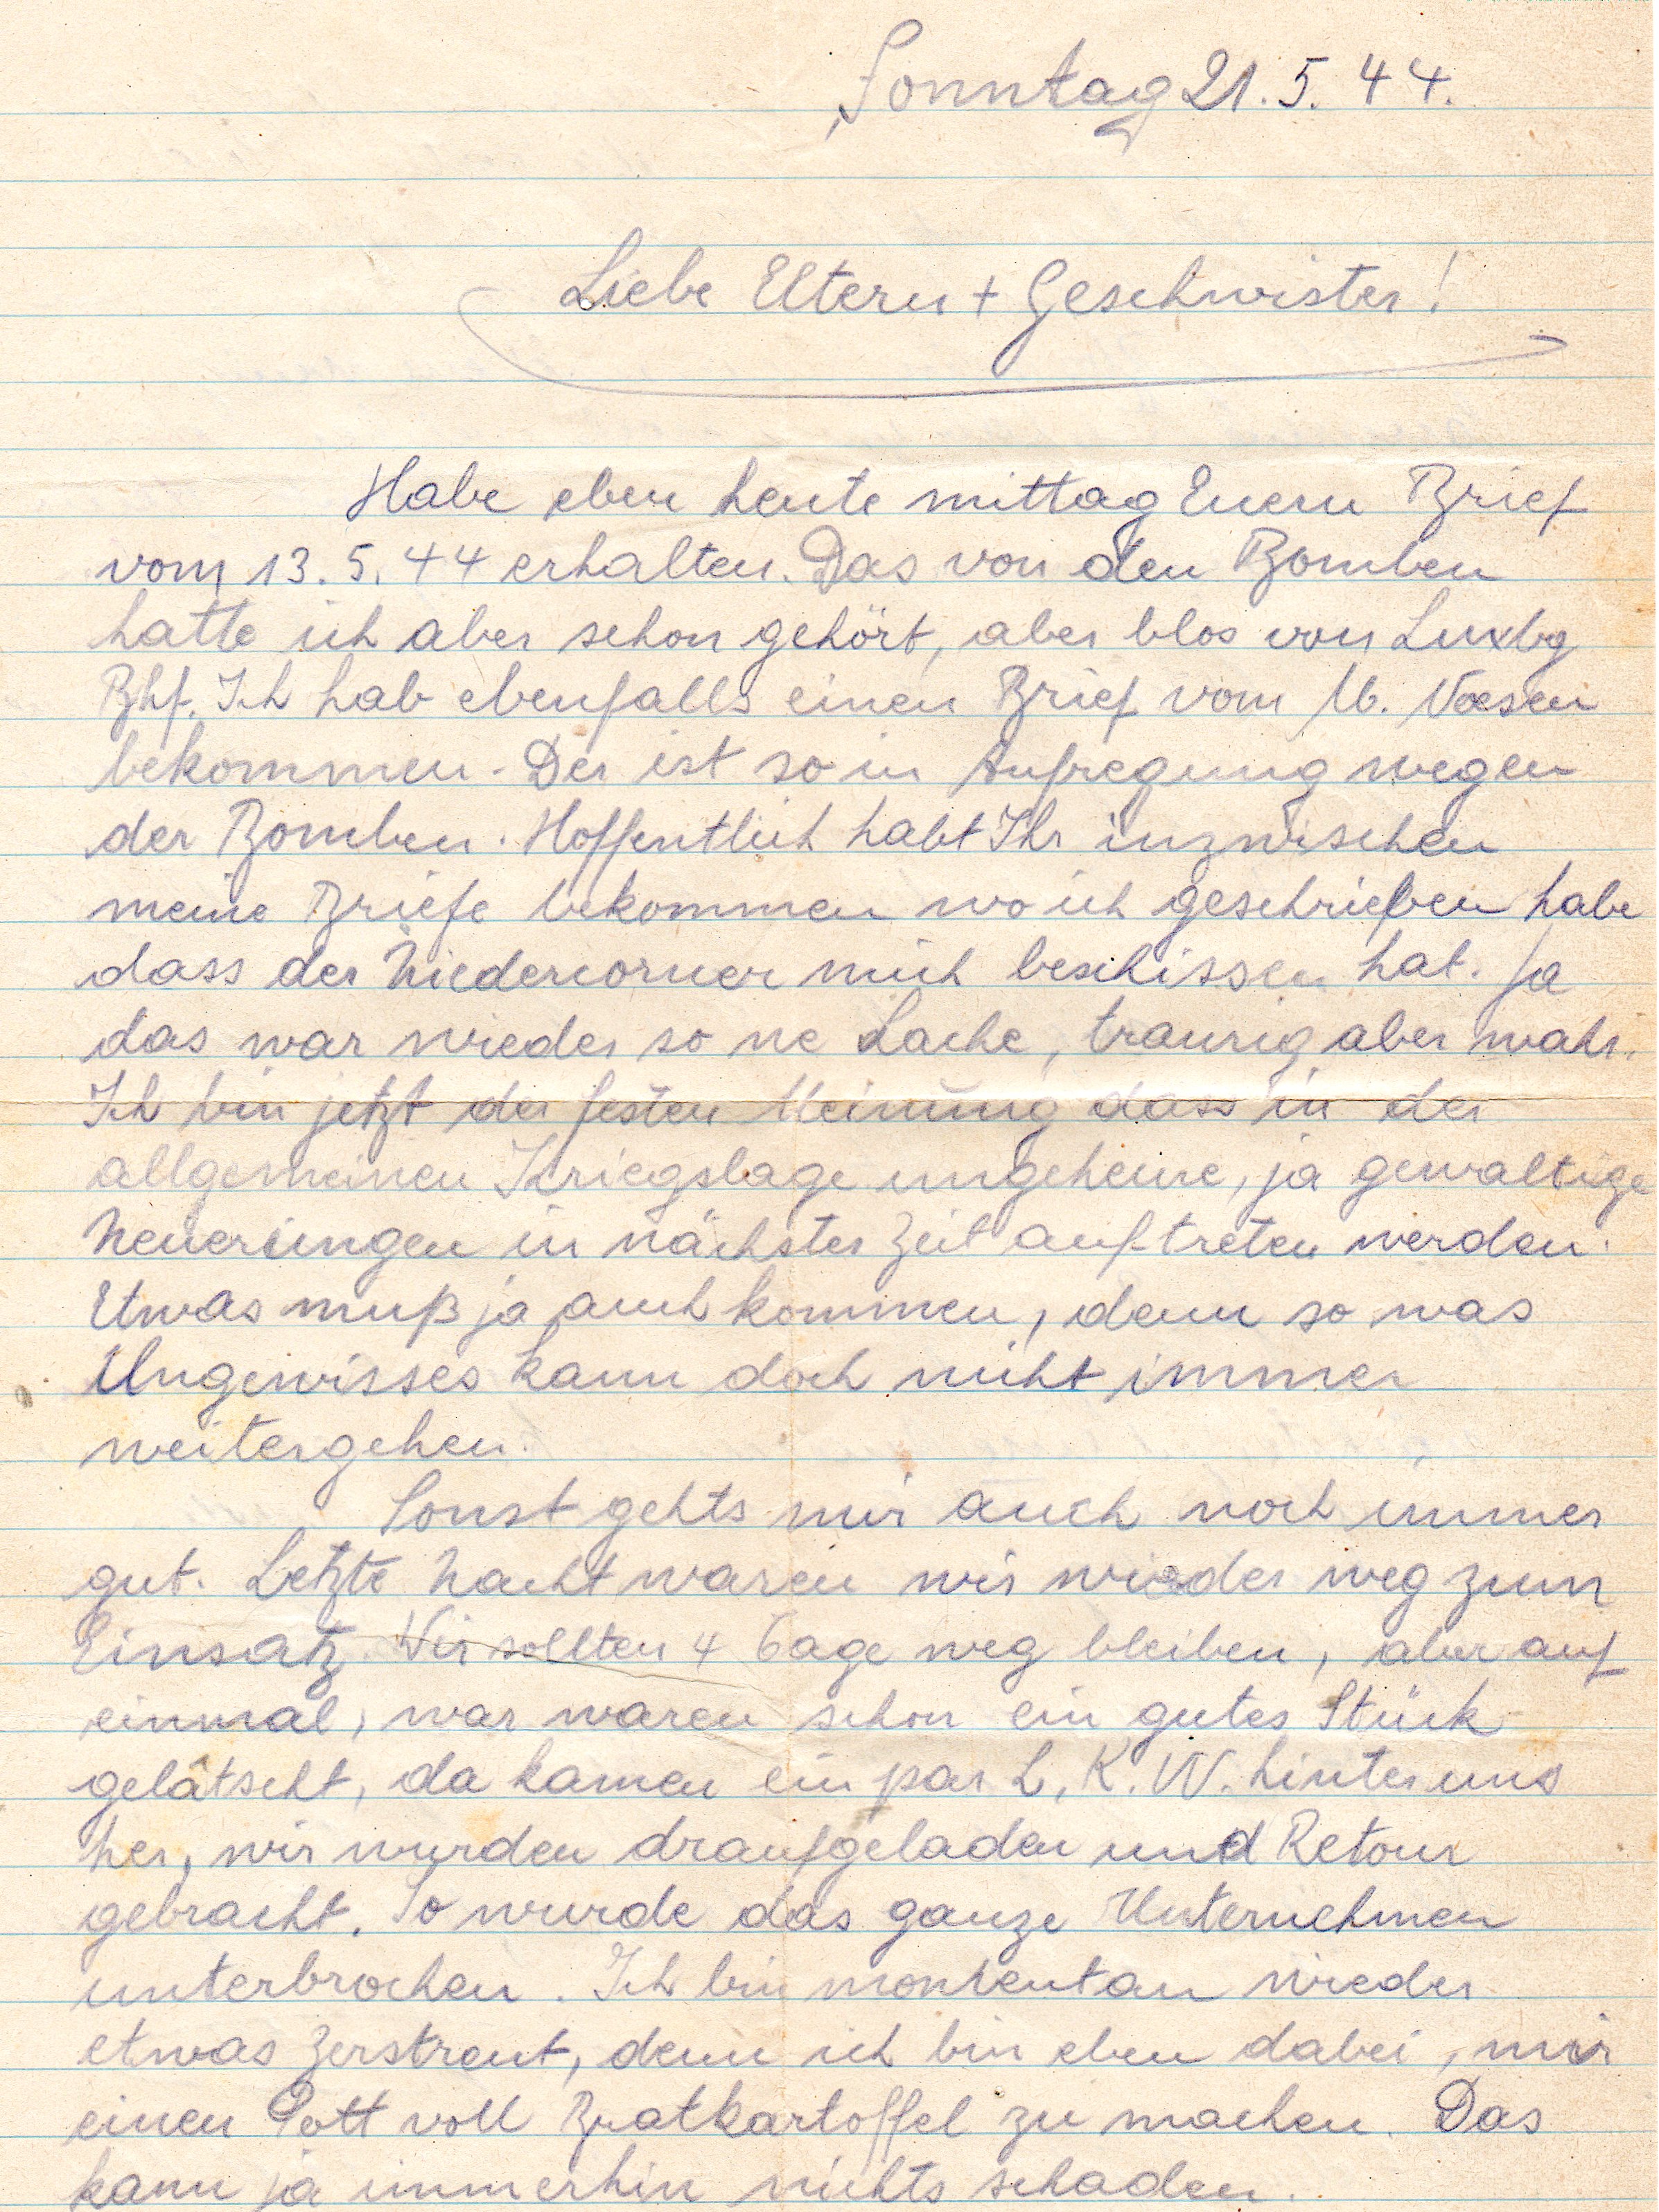 Sonntag 21.5.44.
Liebe Eltern + Geschwister!
Habe eben heute mittag Euern Brief
vom 13.5.44 erhalten. Das von den Bomben
hatte ich aber schon gehört, aber blos von Luxbg
Bhf. Ich hab ebenfalls einen Brief vom M. Voesen
bekommen. Der ist so in Aufregung wegen
der Bomben. Hoffentlich habt Ihr inzwischen
meine Briefe bekommen wo ich geschrieben habe
dass der Niedercorner mich beschissen hat. Ja
das war wieder so ne Sache, traurig aber wahr.
Ich bin jetzt der festen Meinung dass in der
allgemeinen Kriegslage ungeheure, ja gewaltige
Neuerungen in nächster Zeit auftreten werden.
Etwas muß ja auch kommen, denn so was
Ungewisses kann doch nicht immer
weitergehen.
Sonst gehts mir auch noch immer
gut. Letzte Nacht waren wir wieder weg zum
Einsatz. Wir sollten 4 Tage weg bleiben, aber auf
einmal, war waren schon ein gutes Stück
gelatscht, da kamen ein par L.K.W. hinter uns
her, wir wurden draufgeladen und Retour
gebracht. So wurde das ganze Unternehmen
unterbrochen. Ich bin momentan wieder
etwas zerstreut, denn ich bin eben dabei, mir
einen Pott voll Bratkartoffel zu machen. Das
kann ja immerhin nichts schaden.